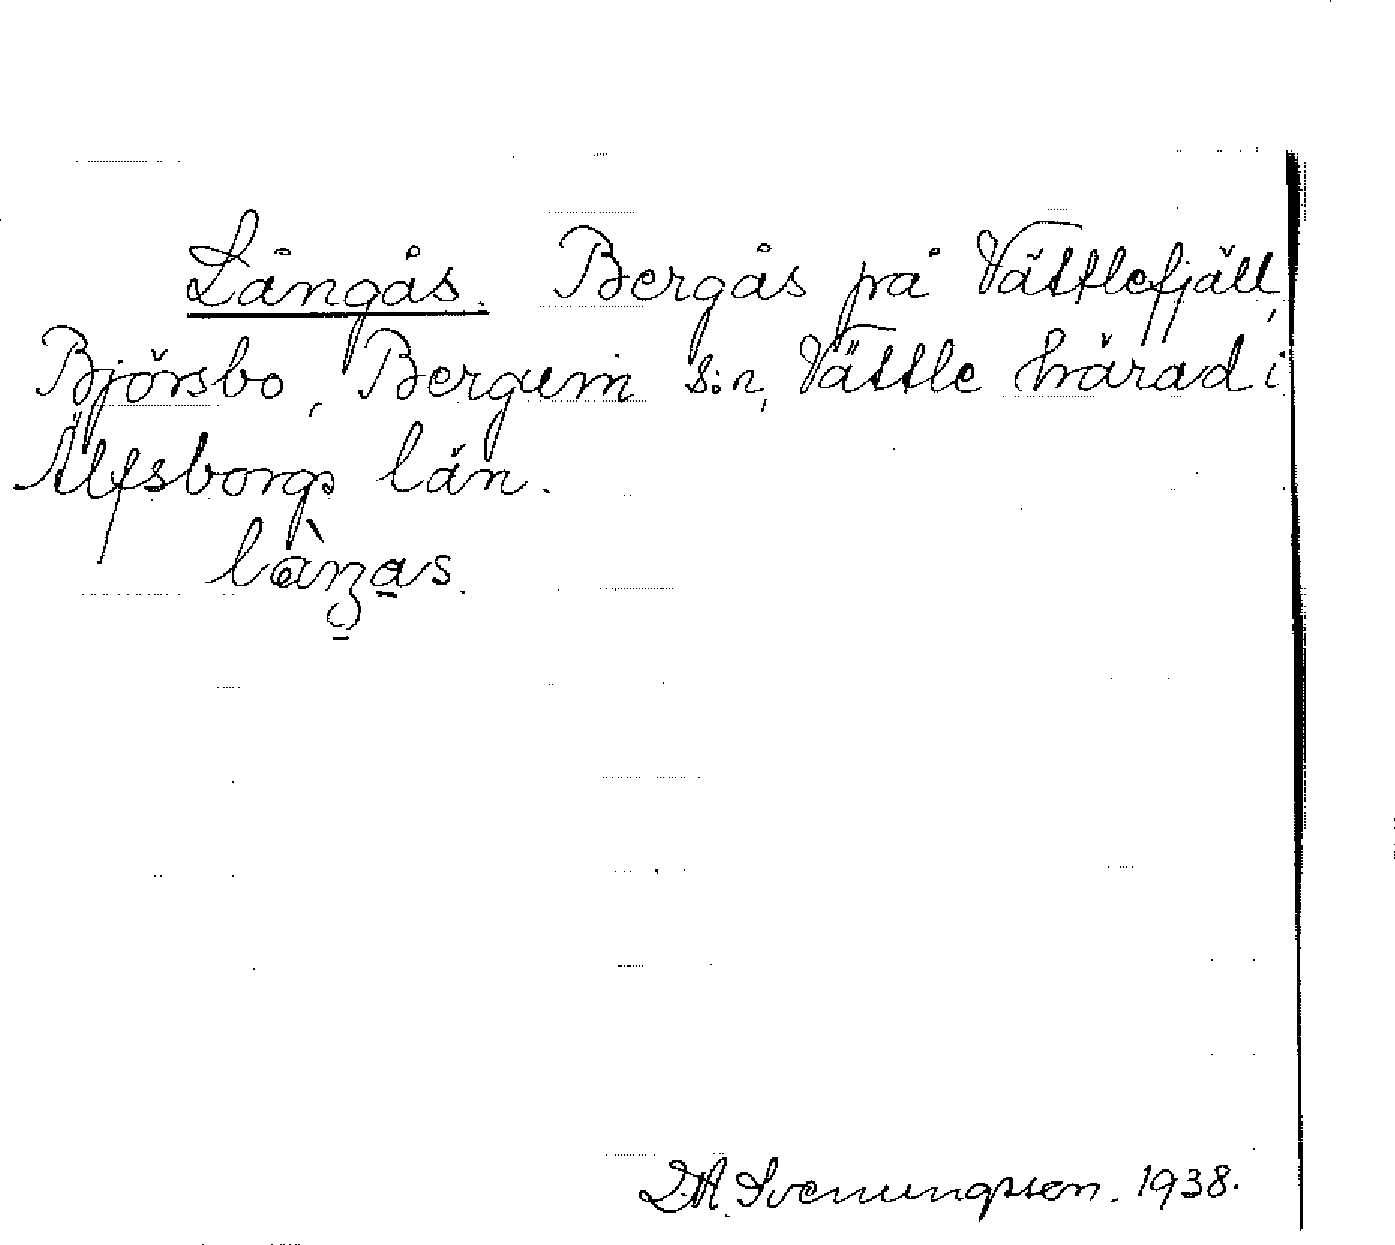 Långås. Bergås på Vättlefjäll,
Björsbo, Bergum s:n, Vättle härad i
Älfsborgs län.
D.A. Svenungsson. 1938.